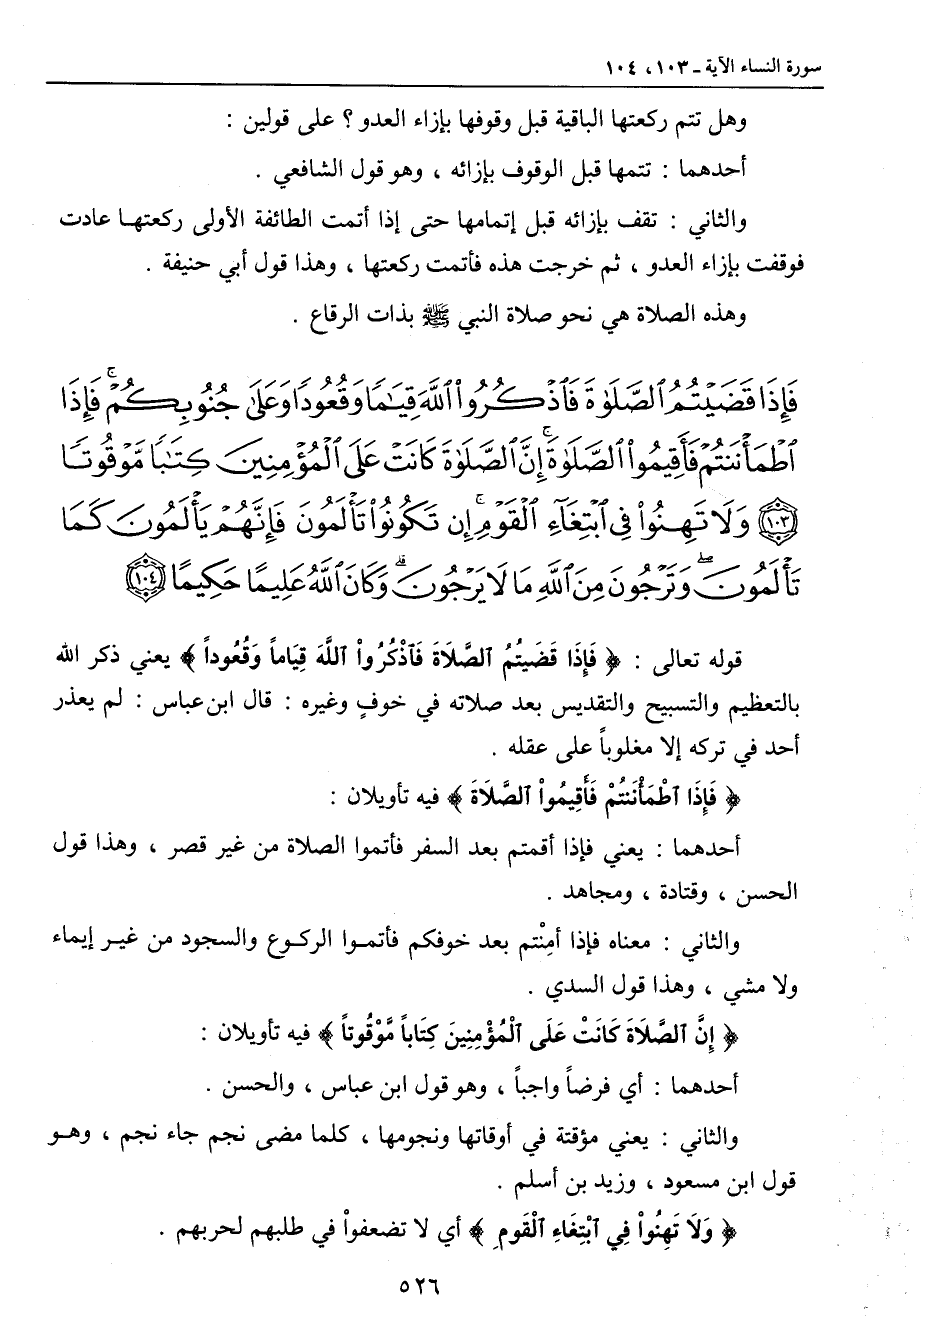 سورة النساء الآية ـ ١٠٣ ، ١٠٤
وهل تتم ركعتها الباقية قبل وقوفها بإزاء العدو ؟ على قولين :
أحدهما : تتمها قبل الوقوف بإزائه ، وهو قول الشافعي .
والثاني : تقف بإزائه قبل إتمامها حتى إذا أتمت الطائفة الأولى ركعتهـا عادت
فوقفت بإزاء العدو ، ثم خرجت هذه فأتمت ركعتها ، وهذا قول أبي حنيفة .
وهذه الصلاة هي نحو صلاة النبي ﷺ بذات الرقاع .
فَإِذَا قَضَيْتُمُ ٱلصَّلَوٰةَ فَٱذْكُرُوا۟ ٱللَّهَ قِيَٰمًا وَقُعُودًا وَعَلَىٰ جُنُوبِكُمْ ۚ فَإِذَا
ٱطْمَأْنَنتُمْ فَأَقِيمُوا۟ ٱلصَّلَوٰةَ ۚ إِنَّ ٱلصَّلَوٰةَ كَانَتْ عَلَى ٱلْمُؤْمِنِينَ كِتَٰبًا مَّوْقُوتًا
﴿١٠٣﴾ وَلَا تَهِنُوا۟ فِى ٱبْتِغَآءِ ٱلْقَوْمِ ۖ إِن تَكُونُوا۟ تَأْلَمُونَ فَإِنَّهُمْ يَأْلَمُونَ كَمَا
تَأْلَمُونَ ۖ وَتَرْجُونَ مِنَ ٱللَّهِ مَا لَا يَرْجُونَ ۗ وَكَانَ ٱللَّهُ عَلِيمًا حَكِيمًا ﴿١٠٤﴾
قوله تعالى : ﴿ فَإِذَا قَضَيتُمُ ٱلصَّلَاةَ فَٱذْكُرُواْ ٱللَّهَ قِيَاماً وَقُعُوداً ﴾ يعني ذكر الله
بالتعظيم والتسبيح والتقديس بعد صلاته في خوفٍ وغيره : قال ابن عباس : لم يعذر
أحد في تركه إلا مغلوباً على عقله .
﴿ فَإِذَا ٱطْمَأْنَنتُمْ فَأَقِيمُواْ ٱلصَّلَاةَ ﴾ فيه تأويلان :
أحدهما : يعني فإذا أقمتم بعد السفر فأتموا الصلاة من غير قصر ، وهذا قول
الحسن ، وقتادة ، ومجاهد .
والثاني : معناه فإذا أمِنْتم بعد خوفكم فأتمـوا الركـوع والسجود من غيـر إيماء
ولا مشي ، وهذا قول السدي .
﴿ إِنَّ ٱلصَّلَاةَ كَانَتْ عَلَى ٱلْمُؤْمِنِينَ كِتَاباً مَّوْقُوتاً ﴾ فيه تأويلان :
أحدهما : أي فرضاً واجباً ، وهو قول ابن عباس ، والحسن .
والثاني : يعني مؤقتة في أوقاتها ونجومها ، كلما مضى نجم جاء نجم ، وهـو
قول ابن مسعود ، وزيد بن أسلم .
﴿ وَلَا تَهِنُواْ فِي ٱبْتِغَاءِ ٱلْقَومِ ﴾ أي لا تضعفواْ في طلبهم لحربهم .
٥٢٦